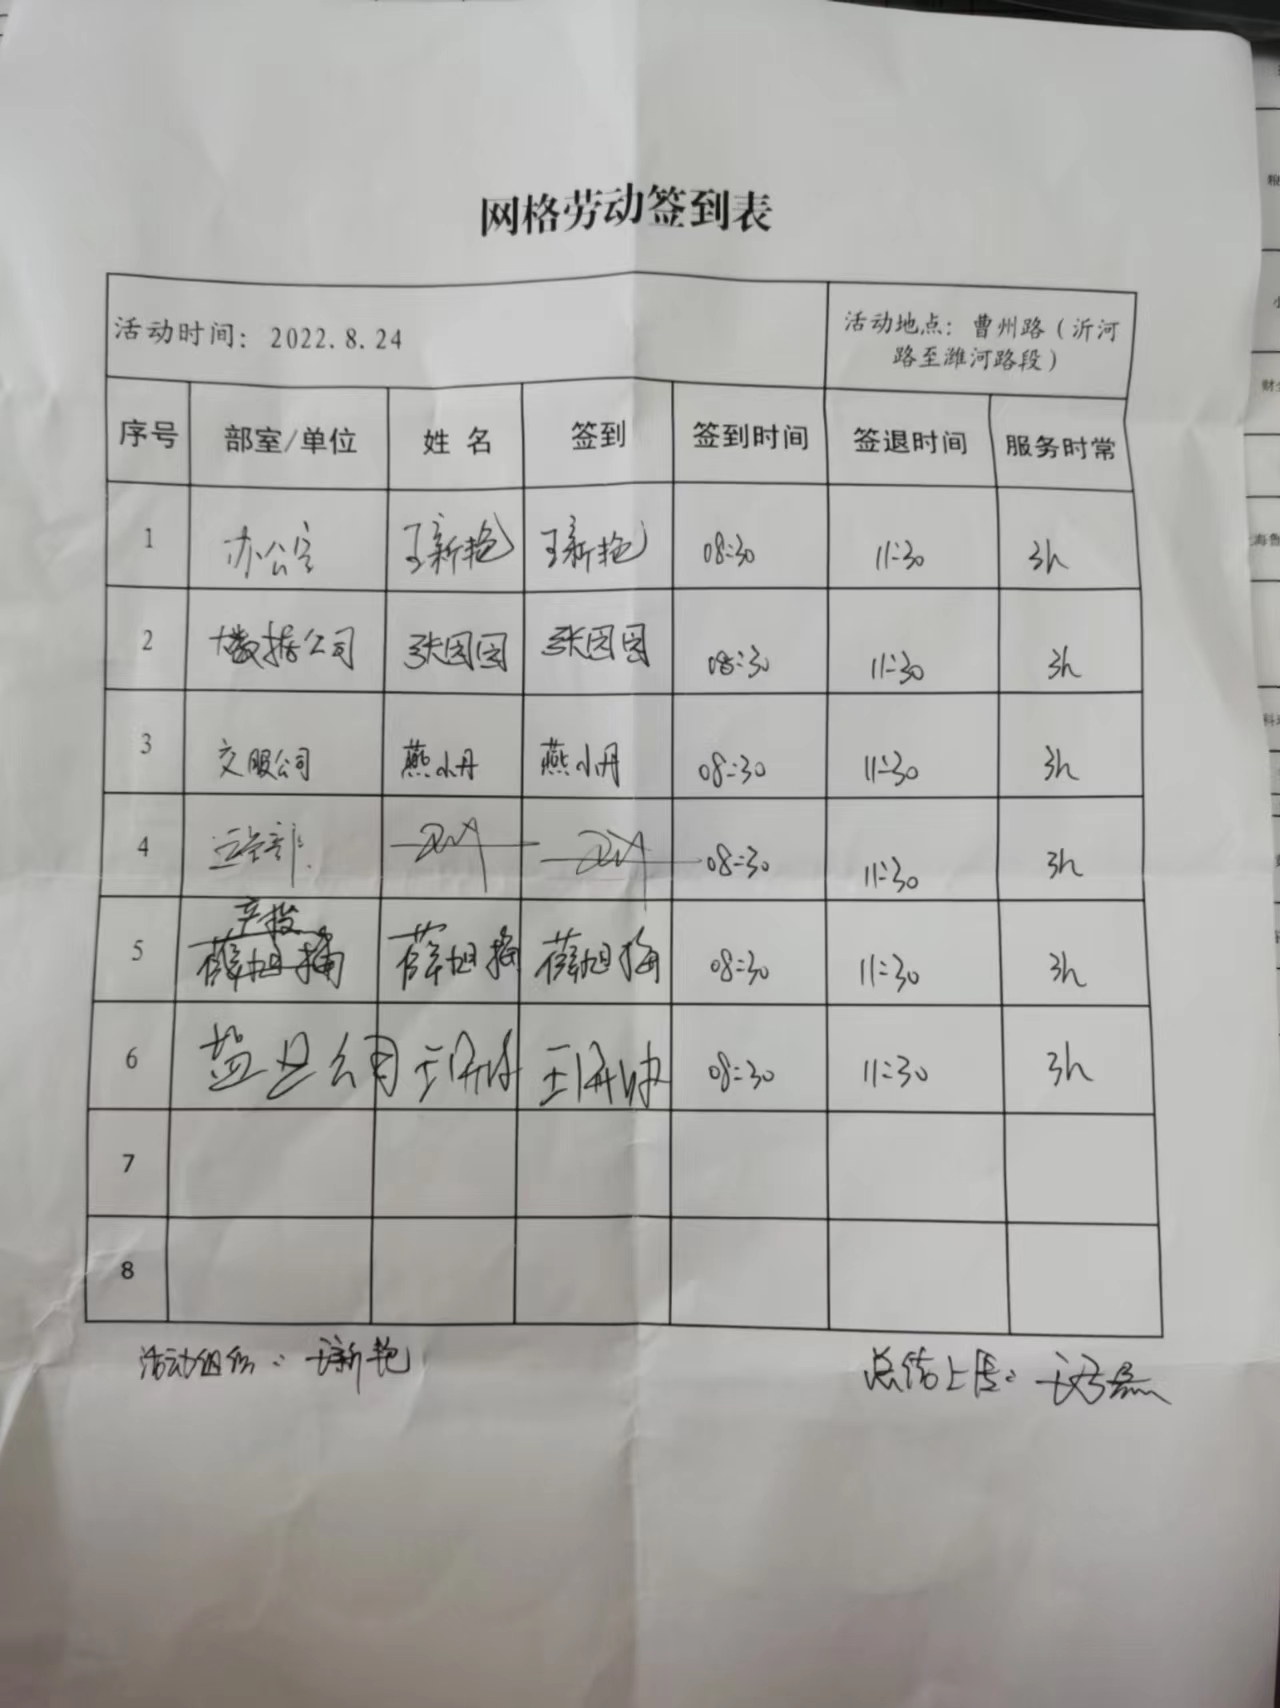 网格劳动签到表
活动时间：2022.8.24
活动地点：曹州路（沂河
路至潍河路段）
序号 部室/单位 姓 名 签到 签到时间 签退时间 服务时常
1 办公室 王新艳 王新艳 08:30 11:30 3h
2 大数据公司 张团团 张团团 08:30 11:30 3h
3 交服公司 燕小丹 燕小丹 08:30 11:30 3h
4 运营部 08:30 11:30 3h
产投
5 薛旭梅 薛旭梅 薛旭梅 08:30 11:30 3h
6 公司 08:30 11:30 3h
7
8
活动组织：王新艳
总结上传：